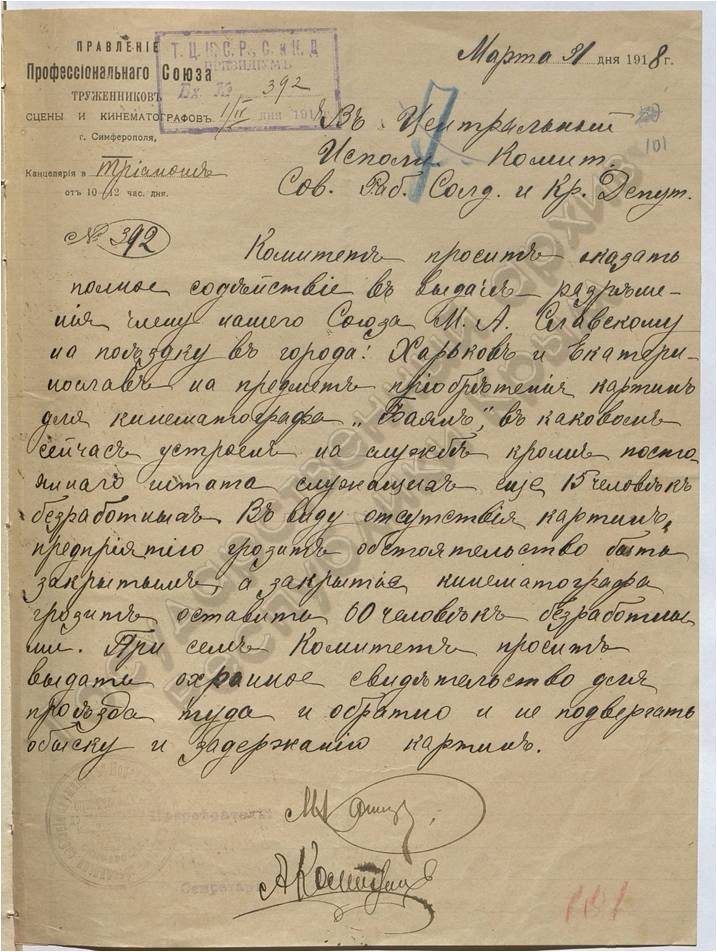 ПРАВЛЕНІЕ
Профессіональнаго Союза
ТРУЖЕННИКОВЪ
СЦЕНЫ И КИНЕМАТОГРАФОВЪ
г. Симферополя,
Канцелярія в Тріанонъ
отъ 10-12 час. дня.
Т. Ц. И. С. Р., С. и К. Д
ПРЕЗИДІУМЪ
Вх. № 392
1/IV дня 191
Марта 31 дня 1918 г.
Въ Центральный
Исполн. Комит.
Сов. Раб. Солд. и Кр. Депут.
101
№ 392
Комитетъ проситъ оказать
полное содѣйствіе въ выдачѣ разрѣше-
нія члену нашего Союза М. А. Славскому
на поѣздку въ города: Харьковъ и Екатери-
нославъ на предметъ пріобрѣтенія картинъ
для кинематографа „Баянъ", въ каковомъ
сейчасъ устроен на службѣ кромѣ посто-
яннаго штата служащихъ еще 15 человѣкъ
безработныхъ. Въ виду отсутствія картинъ,
предпріятію грозитъ обстоятельство быть
закрытымъ, а закрытье кинематографа
грозитъ оставить 60 человѣкъ безработны-
ми. При семъ Комитетъ проситъ
выдать охранное свидѣтельство для
проѣзда туда и обратно и не подвергать
обыску и задержанію картинъ.
Предсѣдатель
Секретарь
Государственный архив
Республики Крым